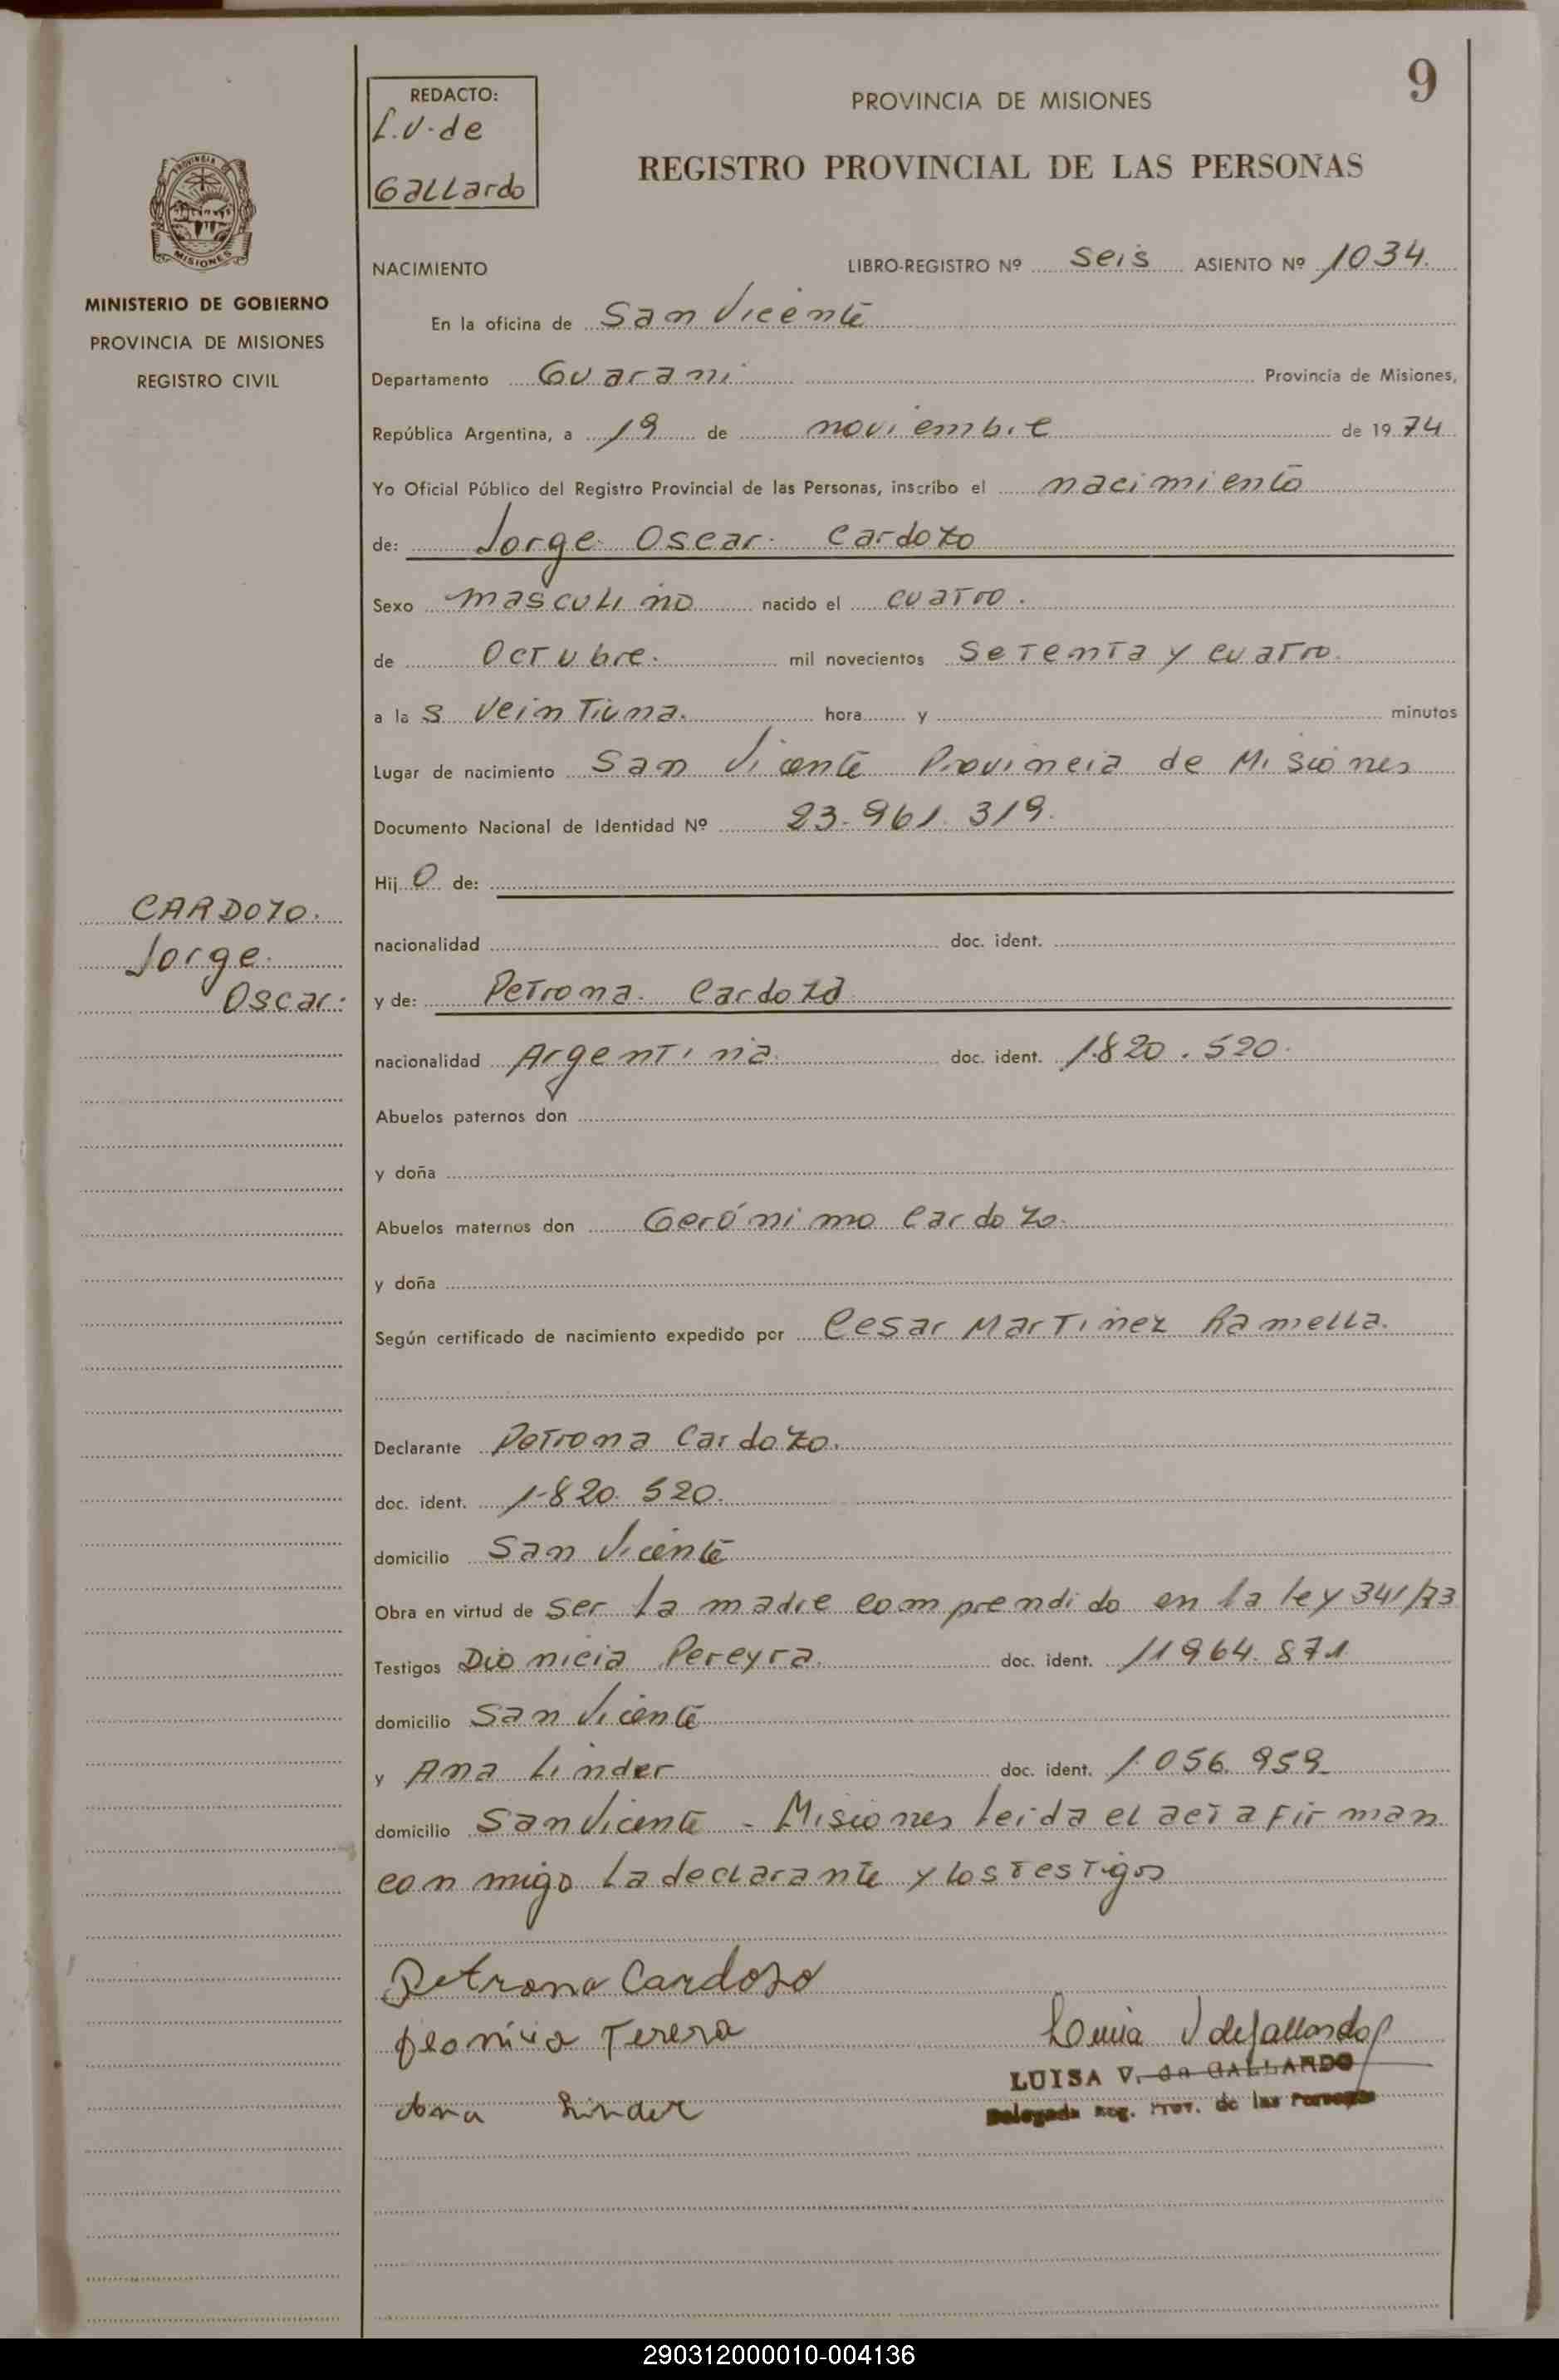 9
REDACTO:
L.V. de
Gallardo
PROVINCIA DE MISIONES
REGISTRO PROVINCIAL DE LAS PERSONAS
PROVINCIA
MISIONES
MINISTERIO DE GOBIERNO
PROVINCIA DE MISIONES
REGISTRO CIVIL
NACIMIENTO LIBRO-REGISTRO Nº seis ASIENTO Nº 1034.
En la oficina de San Vicente
Departamento Guarani Provincia de Misiones,
República Argentina, a 19 de noviembre de 1974
Yo Oficial Público del Registro Provincial de las Personas, inscribo el nacimiento
de: Jorge Oscar Cardozo
Sexo masculino nacido el cuatro.
de Octubre. mil novecientos Setenta y cuatro.
a las veintiuna. hora y minutos
Lugar de nacimiento San Vicente Provincia de Misiones
Documento Nacional de Identidad Nº 23.961.319.
Hijo de:
CARDOZO.
Jorge.
Oscar.
nacionalidad doc. ident.
y de: Petrona Cardozo
nacionalidad Argentina. doc. ident. 1.820.520.
Abuelos paternos don
y doña
Abuelos maternos don Gerónimo Cardozo.
y doña
Según certificado de nacimiento expedido por Cesar Martinez Ramella.
Declarante Petrona Cardozo.
doc. ident. 1-820.520.
domicilio San Vicente
Obra en virtud de ser la madre comprendido en la ley 341/73
Testigos Dionicia Pereyra. doc. ident. 11964.871
domicilio San Vicente
y Ana Linder doc. ident. 1.056.959.
domicilio San Vicente - Misiones leida el acta firman
conmigo la declarante y los testigos
Petrona Cardozo
Ana Linder
Luisa V de Gallardo
LUISA V. de GALLARDO
Delegada Reg. Prov. de las Personas
290312000010-004136